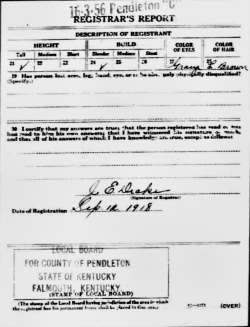 16-3-56 Pendleton "C"
REGISTRAR'S REPORT
DESCRIPTION OF REGISTRANT
HEIGHT BUILD COLOR OF EYES COLOR OF HAIR
Tall Medium Short Slender Medium Stout
21 22 23 24 25 26 27 28 Brown
29 Has person lost arm, leg, hand, eye, or is he physically disqualified?
(Specify.)
30 I certify that my answers are true; that the person registered has read or has
had read to him his own answers; that I have witnessed his signature or mark,
and that all of his answers of which I have knowledge are true, except as follows:
(Signature of Registrar)
Date of Registration Sep 12 1918
LOCAL BOARD
FOR COUNTY OF PENDLETON
STATE OF KENTUCKY
FALMOUTH, KENTUCKY
(STAMP OF LOCAL BOARD)
(The stamp of the Local Board having jurisdiction of the area in which
the registrant has his permanent home shall be placed in this box.)
(OVER)